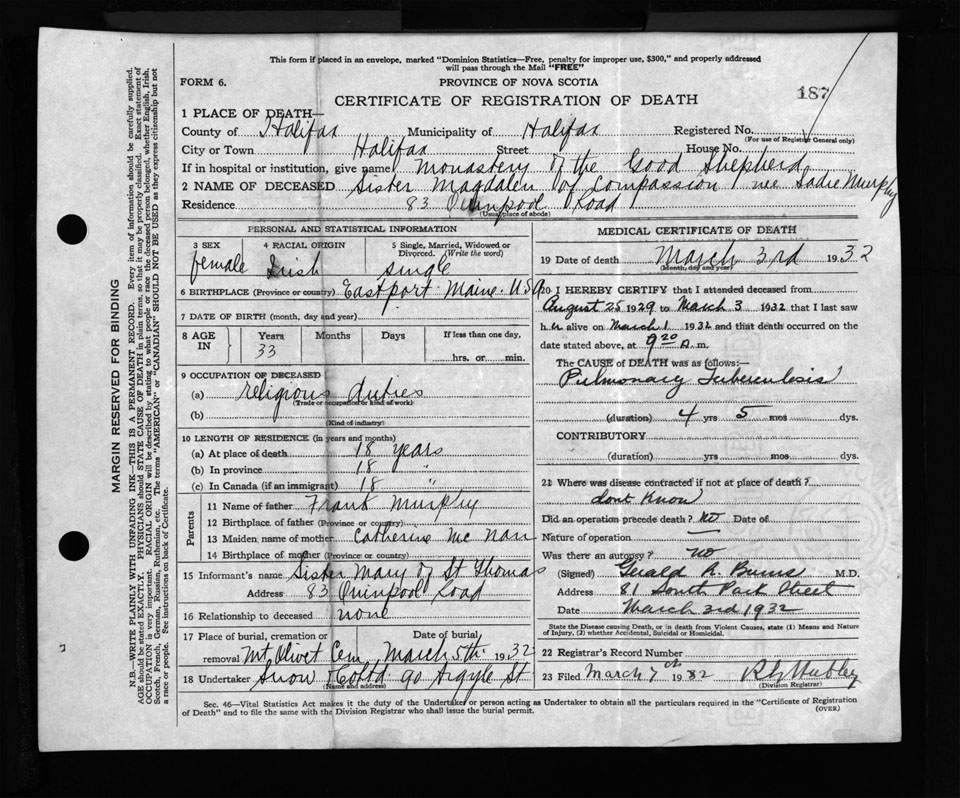 This form if placed in an envelope, marked "Dominion Statistics—Free, penalty for improper use, $300," and properly addressed
will pass through the Mail "FREE"
FORM 6.
PROVINCE OF NOVA SCOTIA
187
CERTIFICATE OF REGISTRATION OF DEATH
1 PLACE OF DEATH—
County of Halifax Municipality of Halifax Registered No.
(For use of Registrar General only)
City or Town Halifax Street House No.
If in hospital or institution, give name Monastery of the Good Shepherd
2 NAME OF DECEASED Sister Magdalen of Compassion nee Sadie Murphy
Residence 83 Quinpool Road
(Usual place of abode)
PERSONAL AND STATISTICAL INFORMATION
3 SEX 4 RACIAL ORIGIN 5 Single, Married, Widowed or
Divorced. (Write the word)
female Irish single
6 BIRTHPLACE (Province or country) Eastport Maine. USA
7 DATE OF BIRTH (month, day and year)
8 AGE IN Years Months Days If less than one day,
33 hrs. or min.
9 OCCUPATION OF DECEASED
(a) religious duties
(Trade or occupation or kind of work)
(b)
(Kind of industry)
10 LENGTH OF RESIDENCE (in years and months)
(a) At place of death 18 years
(b) In province 18 "
(c) In Canada (if an immigrant) 18 "
Parents
11 Name of father Frank Murphy
12 Birthplace of father (Province or country)
13 Maiden name of mother Catherine Mc Nan
14 Birthplace of mother (Province or country)
15 Informant's name Sister Mary of St Thomas
Address 83 Quinpool Road
16 Relationship to deceased none
17 Place of burial, cremation or Date of burial
removal Mt Olivet Cem March 5th 1932
18 Undertaker Snow & Co Ltd 90 Argyle St.
(Name and address)
MEDICAL CERTIFICATE OF DEATH
19 Date of death March 3rd 1932
(Month, day and year)
20 I HEREBY CERTIFY that I attended deceased from
August 25 1929 to March 3 1932 that I last saw
her alive on March 1 1932 and that death occurred on the
date stated above, at 9 20 A. m.
The CAUSE of DEATH was as follows:—
Pulmonary Tuberculosis
(duration) 4 yrs 5 mos dys.
CONTRIBUTORY
(duration) yrs mos dys.
21 Where was disease contracted if not at place of death?
dont know
Did an operation precede death? No Date of
Nature of operation
Was there an autopsy? no
(Signed) Gerald R. Burns M.D.
Address 81 South Park Street
Date March 3rd 1932
State the Disease causing Death, or in death from Violent Causes, state (1) Means and Nature
of Injury, (2) whether Accidental, Suicidal or Homicidal.
22 Registrar's Record Number
23 Filed March 7th 1932
(Division Registrar)
Sec. 46—Vital Statistics Act makes it the duty of the Undertaker or person acting as Undertaker to obtain all the particulars required in the "Certificate of Registration
of Death" and to file the same with the Division Registrar who shall issue the burial permit.
(OVER)
MARGIN RESERVED FOR BINDING
N.B.—WRITE PLAINLY WITH UNFADING INK—THIS IS A PERMANENT RECORD. Every item of information should be carefully supplied.
AGE should be stated EXACTLY. PHYSICIANS should STATE CAUSE OF DEATH in plain terms, so that it may be properly classified. Exact statement of
OCCUPATION is very important. RACIAL ORIGIN will be described by stating to what people or race the deceased person belonged, whether English, Irish,
Scotch, French, German, Russian, Ruthenian, etc. The terms "AMERICAN" or "CANADIAN" SHOULD NOT BE USED as they express citizenship but not
a race or people. See instructions on back of Certificate.